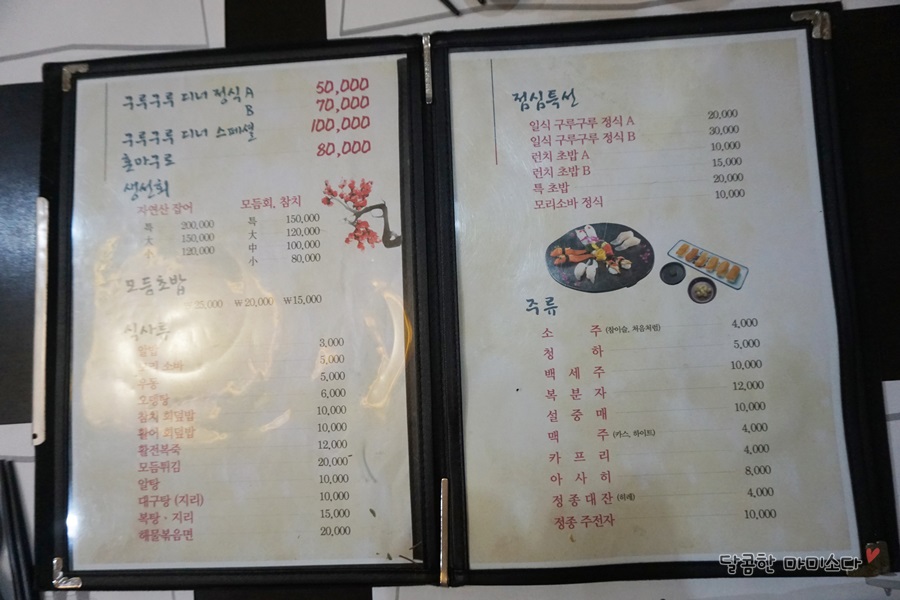 구루구루 디너 정식 A 50,000
B 70,000
구루구루 디너 스페셜 100,000
혼마구로 80,000
생선회
자연산 잡어 모듬회, 참치
특 200,000 특 150,000
大 150,000 大 120,000
小 120,000 中 100,000
小 80,000
모듬초밥
₩25,000 ₩20,000 ₩15,000
식사류
알밥 3,000
소바 5,000
우동 5,000
오뎅탕 6,000
참치 회덮밥 10,000
활어 회덮밥 10,000
활전복죽 12,000
모듬튀김 20,000~
알탕 10,000
대구탕 (지리) 10,000
복탕 · 지리 15,000
해물볶음면 20,000
점심특선
일식 구루구루 정식 A 20,000
일식 구루구루 정식 B 30,000
런치 초밥 A 10,000
런치 초밥 B 15,000
특 초밥 20,000
모리소바 정식 10,000
주류
소 주 (참이슬, 처음처럼) 4,000
청 하 5,000
백 세 주 10,000
복 분 자 12,000
설 중 매 10,000
맥 주 (카스, 하이트) 4,000
카 프 리 4,000
아 사 히 8,000
정 종 대 잔 4,000
정종 주전자 10,000
달콤한 마미소다